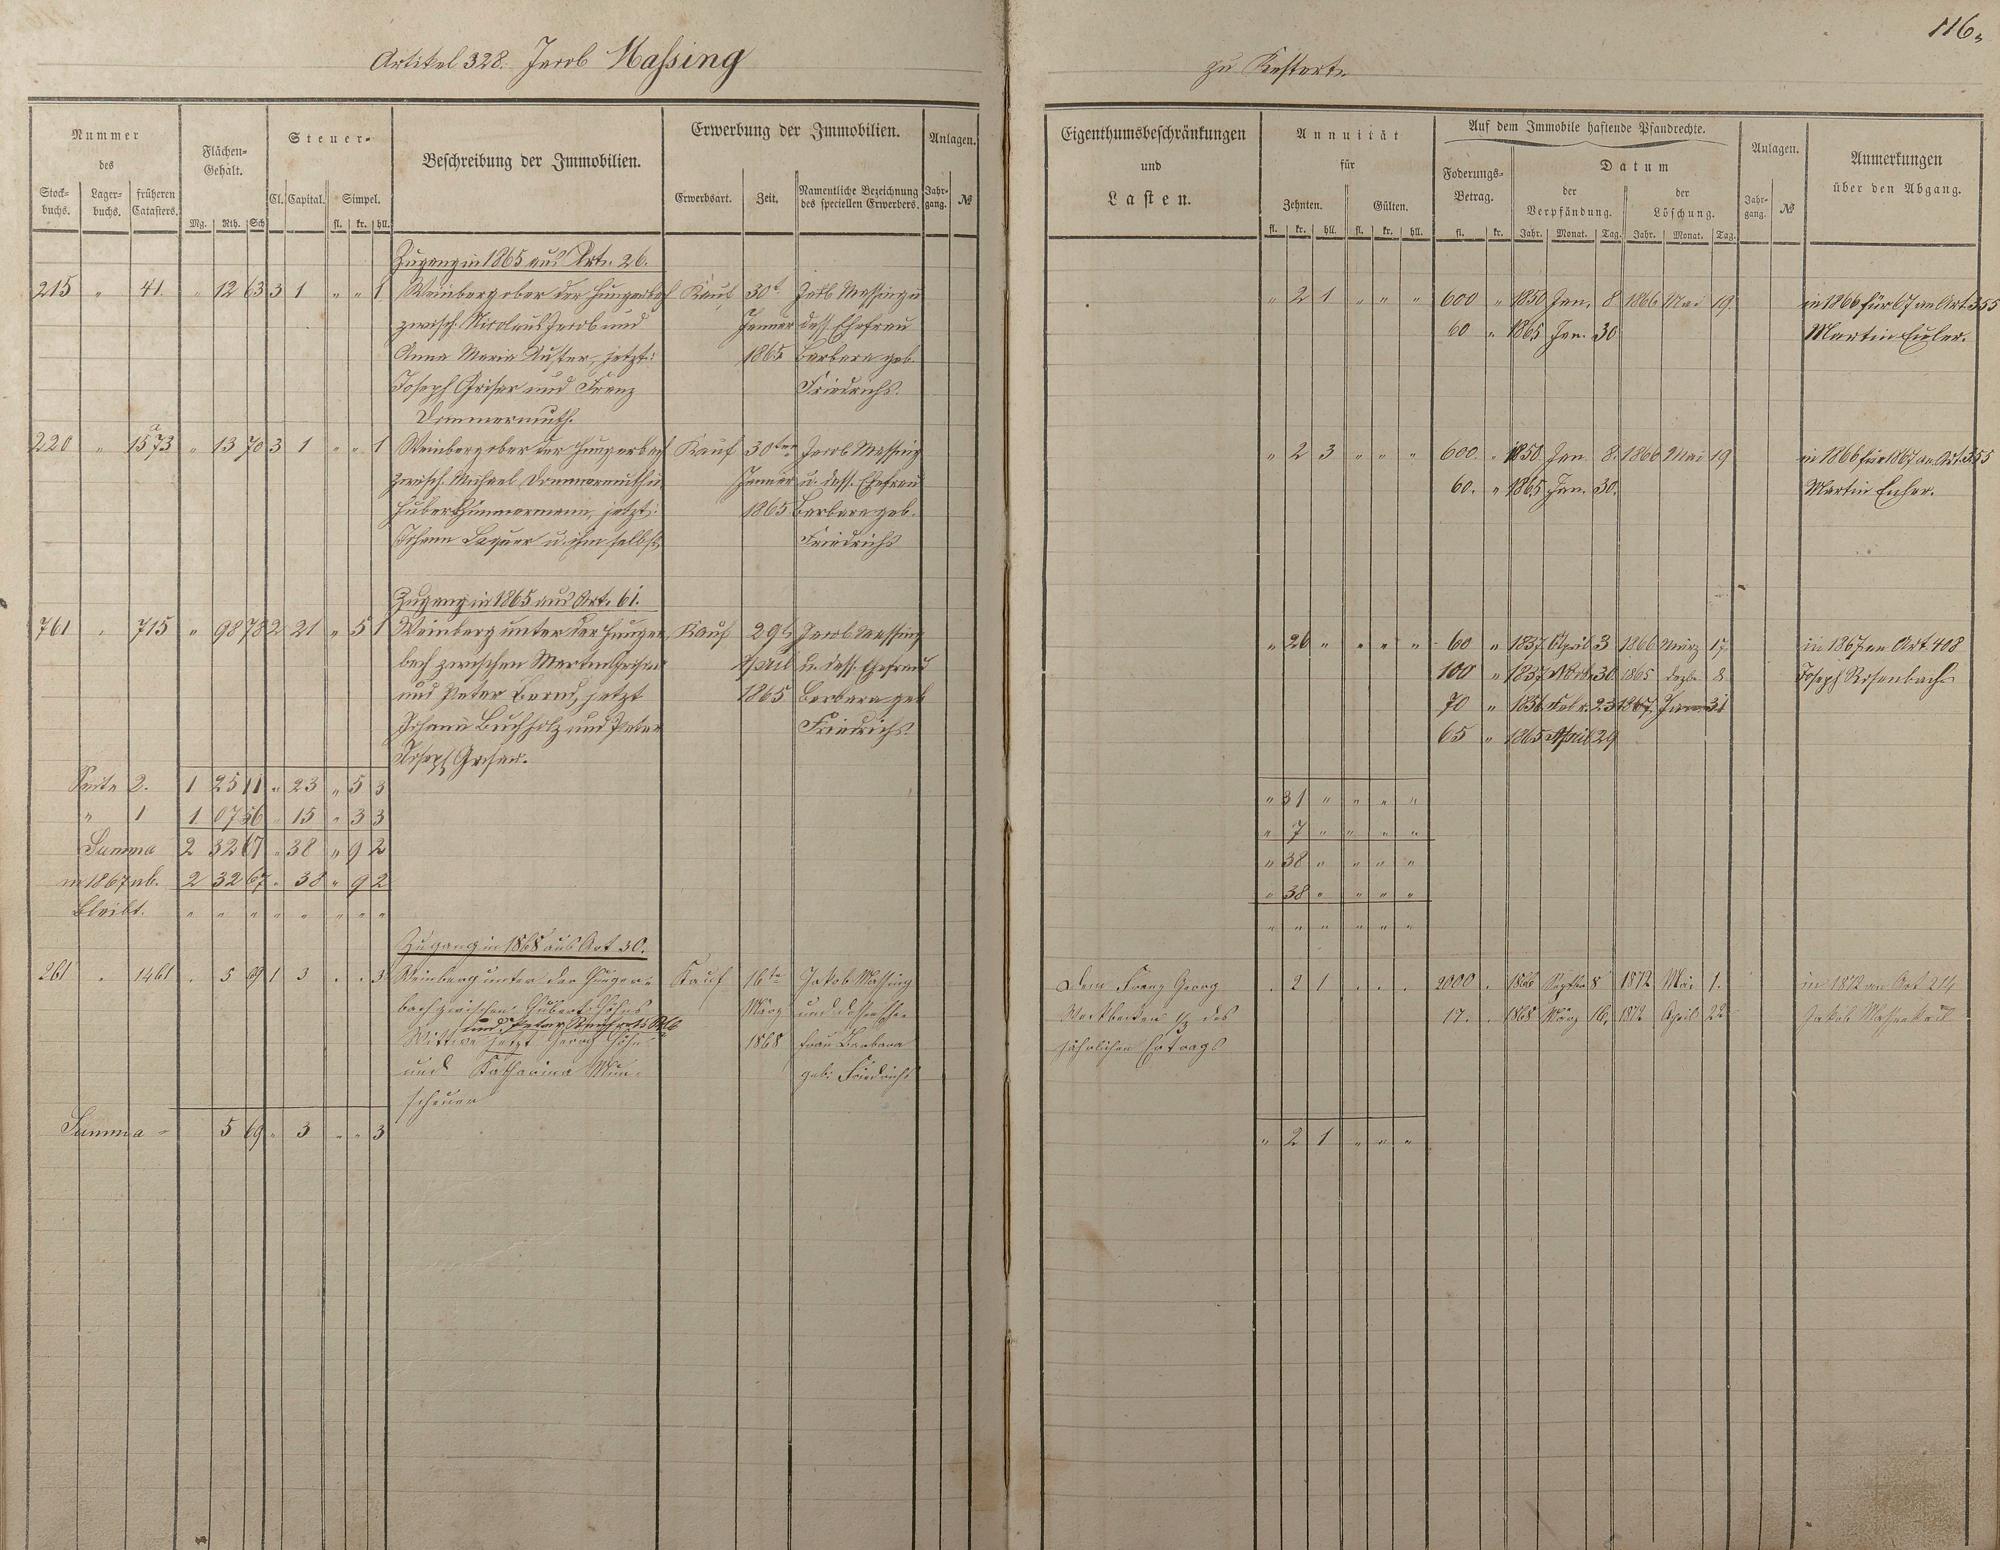 116.
Artikel 328. Jacob Massing
zu Kestert.
Nummer
des
Stock-
buchs.
Lager-
buchs.
früheren
Catasters.
Flächen-
Gehalt.
Mg. Rth. Sch
Steuer-
Cl. Capital. Simpel.
fl. kr. hll.
Beschreibung der Immobilien.
Erwerbung der Immobilien.
Erwerbsart. Zeit.
Namentliche Bezeichnung
des speciellen Erwerbers.
Anlagen.
Jahr-
gang. №
Eigenthumsbeschränkungen
und
Lasten.
Annuität
für
Zehnten. Gülten.
fl. kr. hll. fl. kr. hll.
Auf dem Immobile haftende Pfandrechte.
Foderungs-
Betrag.
fl. kr.
Datum
der
Verpfändung.
der
Löschung.
Jahr. Monat. Tag. Jahr. Monat. Tag.
Anlagen.
Jahr-
gang. №
Anmerkungen
über den Abgang.
Zugang in 1865 aus Art. 26.
215 " 41. " 12 63 3 1 " " 1 Weinberg ober der Hungerbach Kauf 30t Jakb Massing u " 2 1 " " " 600 " 1850 Jan. 8 1866 Mai 19. in 1866 für 67 an Art. 355
zwisch. Nicolaus Jacob und Jenner dess. Ehefrau 60 " 1865 Jan. 30 Martin Euler.
Anna Maria Kuster, jetzt: 1865 Barbara geb.
Joseph Griser und Franz Friedrichs.
Dommermuth.
220 " 1573a " 13 70 3 1 " " 1 Weinberg ober der Hungerbach Kauf 30ten Jacob Massing " 2 3 " " " 600. " 1850 Jan. 8. 1866 Mai 19 in 1866 für 1867 an Art. 355
zwisch. Michael Dommermuth u. Jenner u. dess. Ehefrau 60. " 1865 Jan. 30. Martin Euler.
Hubert Zimmermann, jetzt: 1865 Barbara geb.
Johann u. ihm selbst Friedrichs
Zugang in 1865 aus Art. 61.
761 " 715 " 98 78 2 21 " 5 1 Weinberg unter der Hunger Kauf 29t Jacob Massing " 26 " " " " 60 " 1837 April 3 1866 März 17 in 1867 an Art. 408
bach zwischen Martin Grisar April u. dess. Ehefrau 100 " 1837 30 1865 Dezbr 8 Joseph Rosenbach
und Peter Bernd, jetzt 1865 Barbara geb 70 " Febr. 23 1867. Jan. 31
Johann Buchholz und Peter Friedrichs. 65 " 1865 April 29
Joseph Grisar.
Seite 2. 1 25 11 " 23 " 5 3 " 31 " " " "
" 1 1 07 56 " 15 " 3 3 " 7 " " " "
Summa 2 32 67 " 38 " 9 2 " 38 " " " "
in 1867 ab. 2 32 67 " 38 " 9 2 " 38 " " " "
bleibt. " " " " " " " " " " " " " "
Zugang in 1868 aus Art 30.
261 " 1461 " 5 69 1 3 " " 3 Weinberg unter der Hunger- Kauf 16te Jakob Massing Dem Franz Georg " 2 1 " " " 2000 " 1866 Septbr 8 1872 Mai 1. in 1872 an Art 214
bach zwischen Hubert Höhns März und dessen Ehe- 1/3 des 17. " 1868 März 16. 1872 April 22 Jakob
und Peter
Wittwe jetzt Georg Höhn 1868 frau Barbara jährlichen Ertrags
und Katharina Mün- geb: Friedrichs
scheuer
Summa = 5 69 " 3 " " 3 " 2 1 " " "